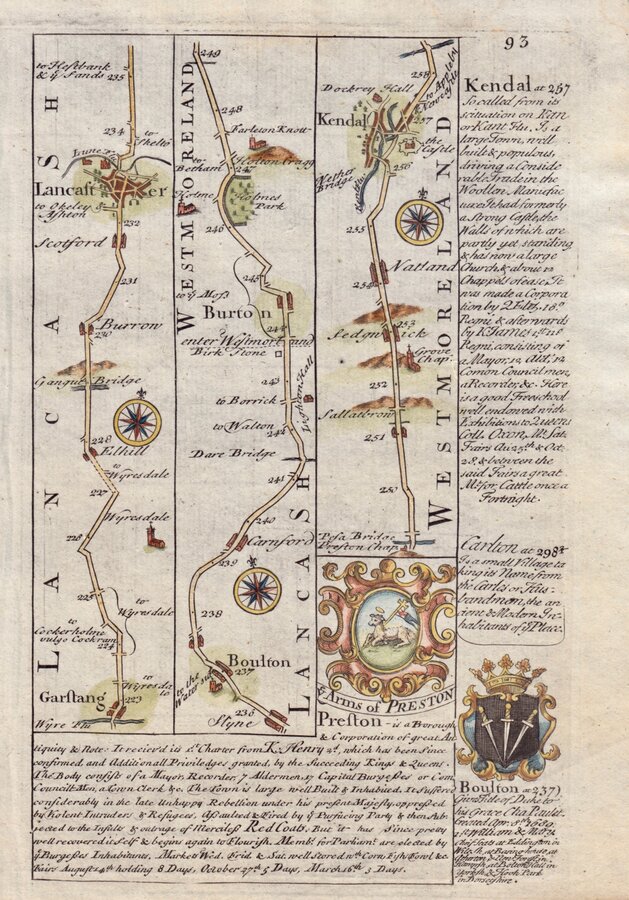 93
to Hestbank
& ye Sands 235
234
to
Skelto
Lune
Lancast er
to Okeley &
Ashton
232
Scotford
231
Burrow
230
Gangut Bridge
228
Elhill
to
Wyresdale
227
Wyresdale
225
to
Wyresdale
to
Cockerholme
vulgo Cockram
224
to
Wyresda le
Garstang
223
Wyre Flu
LANCASH
WESTMORELAND
249
248
Farleton Knott
to
Betham
Holton Cragg
247
Holme
Holmes
Park
246
245
to ye Moss
Burton
244
enter Westmorland
Birk Stone
243
to Borrick
Lighorn Hall
to Walton
242
Dare Bridge
241
240
Carnford
239
238
Boulton
237
to the
Water side
236
Slyne
LANCASH
258
to Appleby
Dockrey Hall
Kendal
257
the
Castle
256
Nether
Bridge
255
Natland
254
253
Sedgwick
Grove
Chap.
252
Sallatbrow
251
250
Pesa Bridge
Preston Chap.
WESTMORELAND
Kendal at 257
So called from its
scituation on Kan
or Kant Flu. Is a
large Town, well
built & populous,
driving a Conside
rable Trade in the
Woollen Manufac
ture It had formerly
a Strong Castle, the
Walls of which are
partly yet standing
& has now a large
Church & about 12
Chappels of ease. It
was made a Corpora
tion by Q Eliz. 18o
Regni & afterwards
by K. James 1st
Regni, consisting of
a Mayor, 12 Ald. 24
Comon Council men,
a Recorder, &c. Here
is a good Freeschool
well endowed with
Exhibitions to Queens
Coll. Oxon, Mt. Sat.
Fairs Ap. 25th & Oct.
28. & between the
said Fairs a great
Mt. for Cattle once a
Fortnight.
Carlton at 298¼
Is a small Village ta
king its Name from
the Carles or Hus-
bandmen, the an
cient & Modern In-
habitants of ye Place.
ye Arms of PRESTON
Preston - is a Borough
& Corporation of great An
tiquiey & Note: It receiv'd its 1st Charter from K. Henry 2d, which has been since
confirmed and Additionall Priviledges granted, by the Succeeding Kings & Queens.
The Body consists of a Mayor, Recorder, 7 Aldermen, 17 Capital Burgesses or Com.
Council Men, a Town Clerk &c. The Town is large well Built & Inhabited. It Suffered
considerably in the late Unhappy Rebellion under his present Majesty, oppressed
by Violent Intruders & Refugees, Assaulted & Fired by ye Pursueing Party & then Sub-
jected to the Insults & outrage of Merciless Red Coats. But it has since pretty
well recovered it Self & begins again to Flourish. Memb. for Parliamt. are elected by
ye Burgesses Inhabitants, Markets Wed. Frid. & Sat. well Stored wth Corn, Fish, Fowl &c.
Fairs August 14th holding 8 Days, October 27th 5 Days, March 16th 3 Days.
Boulton at 237)
Gives Title of Duke to
his Grace Cha. Paulet
Created Apr. 9th 1689.
1st William & Mary.
Chief Seats at Eddington in
Wiltsh. at Basing house, at
at Bolton Hall in
Yorksh. & Hook Park
in Dorsetshire.